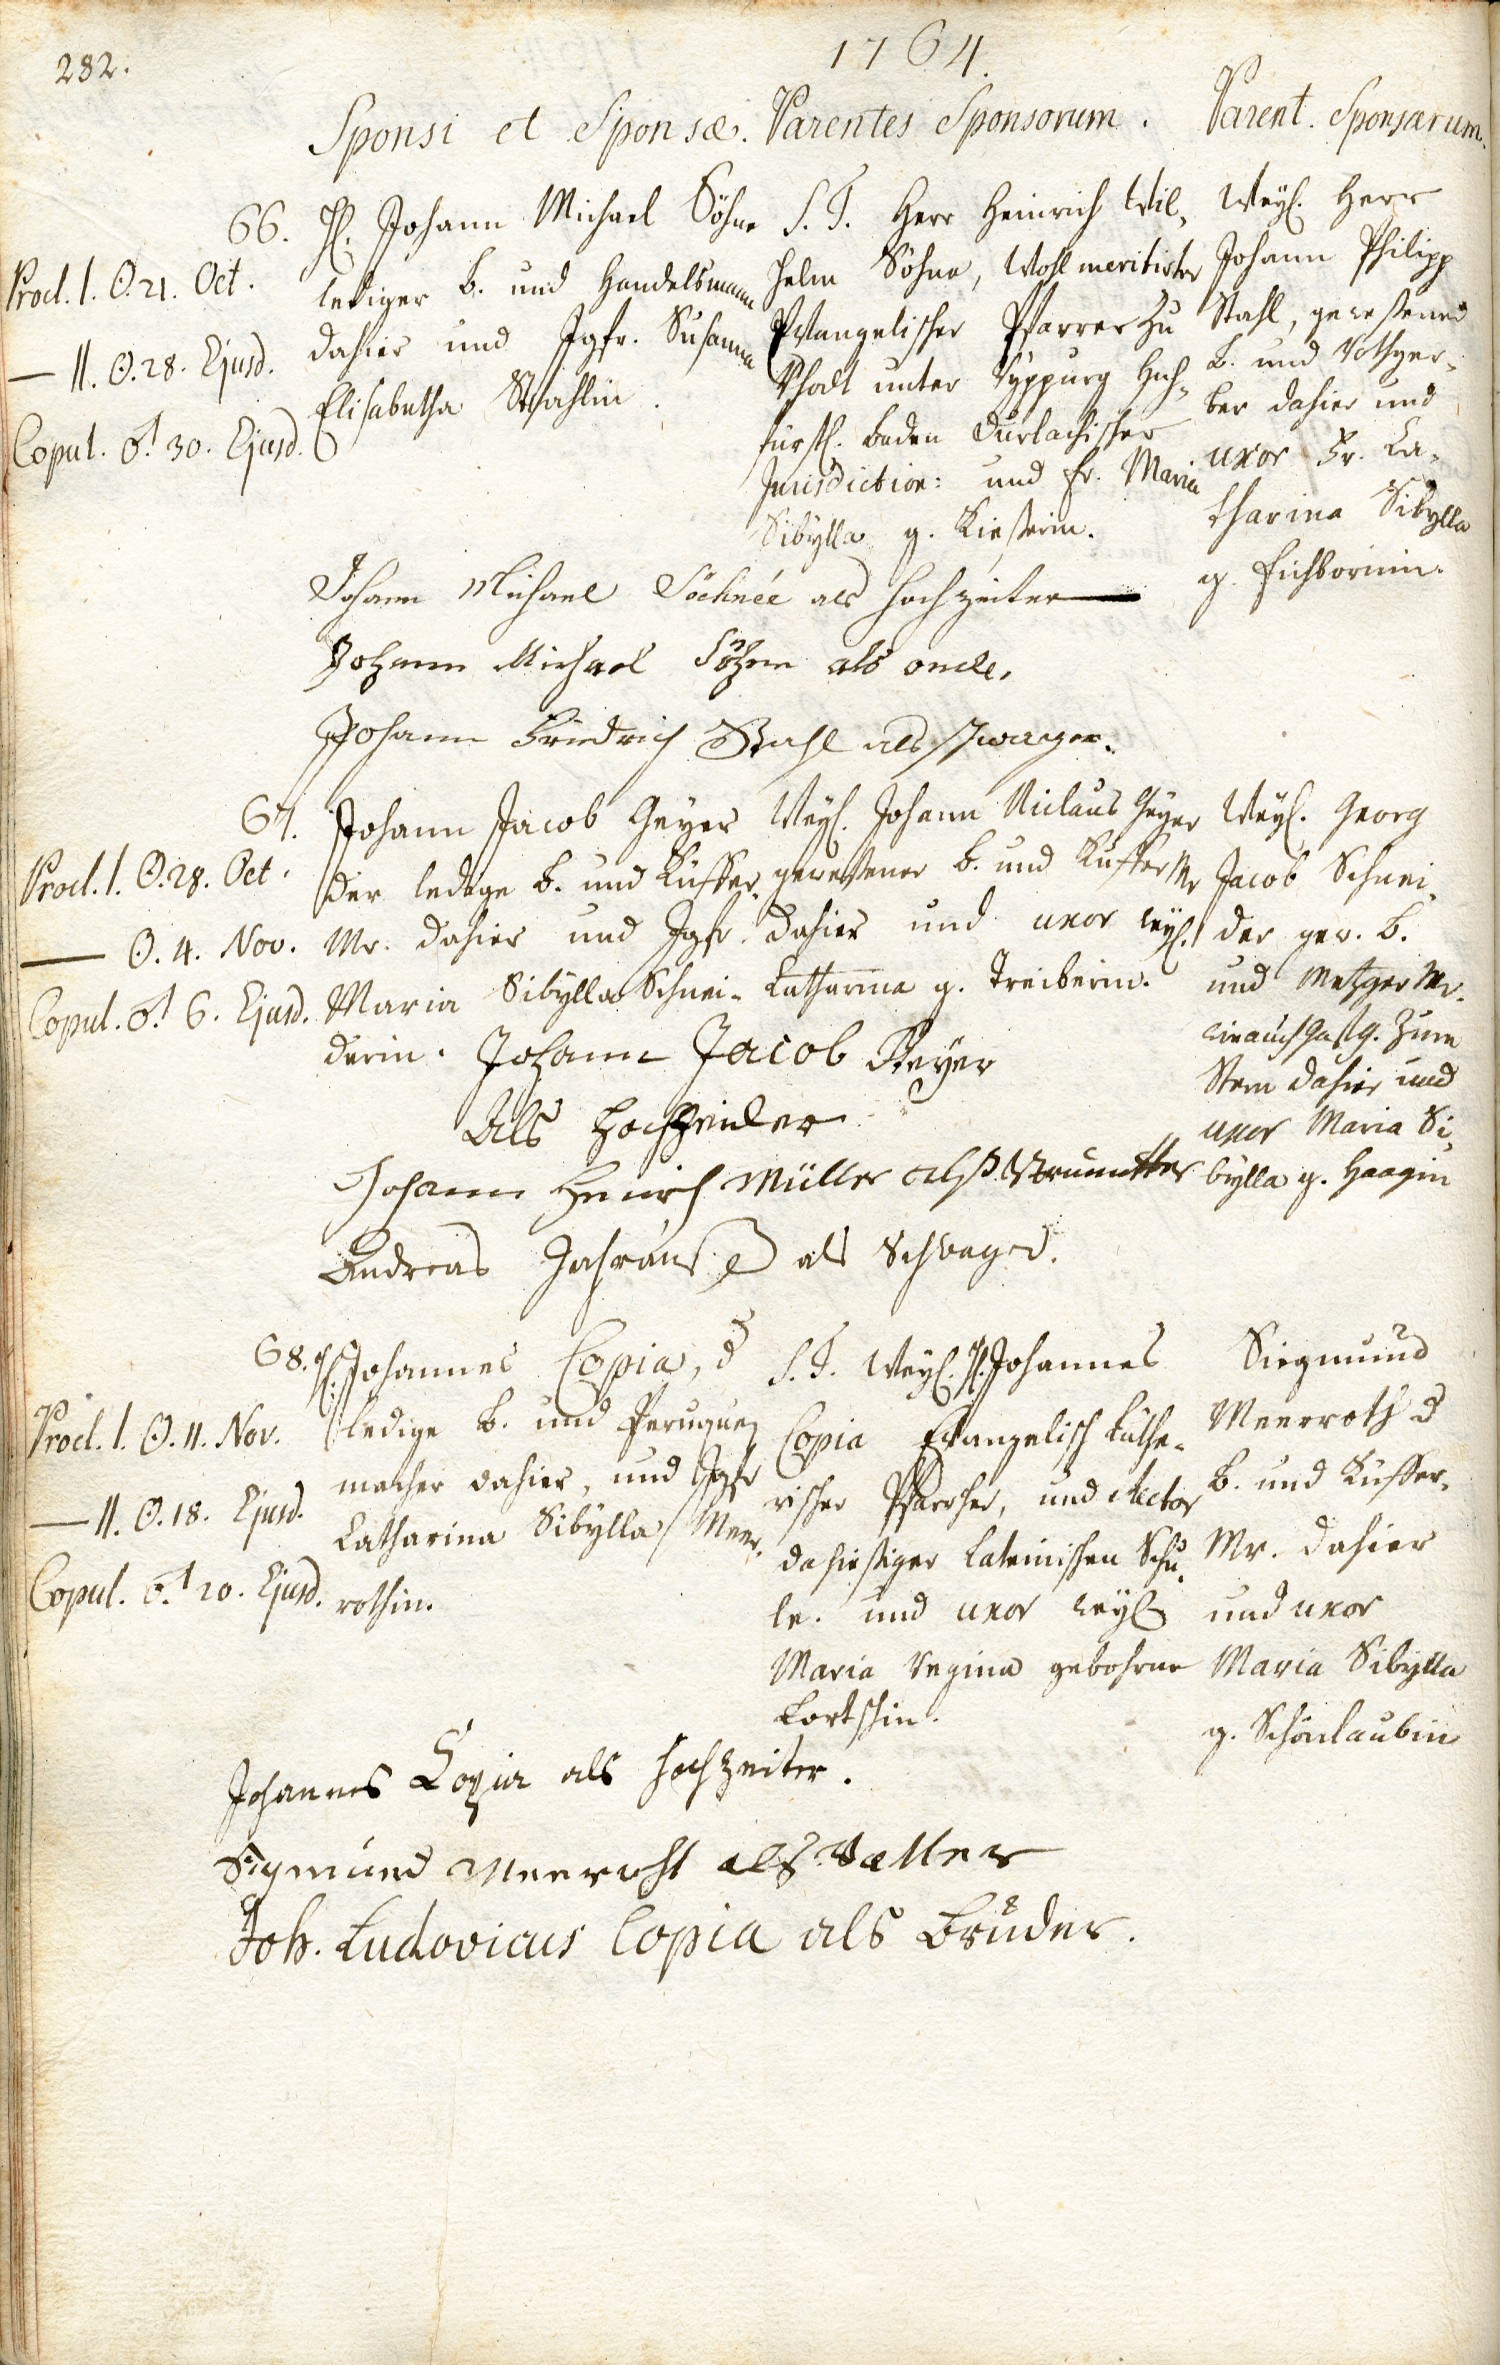 282.
1764.
Sponsi et Sponsæ. Parentes Sponsorum. Parent. Sponsarum.
66.
Procl. I. ☉. 21. Oct.
— II. ☉. 28. Ejusd.
Copul. ♂ 30. Ejusd.
H. Johann Michael Söhne
lediger B. und Handelsmann
dahier und Jgfr. Susanna
Elisabetha Stahlin.
S. T. Herr Heinrich Wil-
helm Söhne, Wohlmeritirter
Evangelischer Pfarrer zu
Rhodt unter Rippurg Hoch-
fürstl. Baden Durlachischer
Jurisdiction: und Fr. Maria
Sibylla g.
Weyl. Herr
Johann Philipp
Stahl, gewesener
B. und Rothger-
ber dahier und
uxor Fr. Ca-
tharina Sibylla
g. Eichbornin.
Johann Michael Söehnée als Hochzeiter
Johann Michael Söhne als oncle.
Johann Friedrich Stahl als Schwager.
67.
Procl. I. ☉. 28. Oct.
— ☉. 4. Nov.
Copul. ♂ 6. Ejusd.
Johann Jacob Geyer
der ledige B. und Küffer-
Mr. dahier und Jgfr.
Maria Sibylla Schnei-
derin.
Weyl. Johann Niclaus Geyer
gewesener B. und Küffer Mr
dahier und uxor weyl.
Catharina g. Treiberin.
Weyl. Georg
Jacob Schnei-
der gew. B.
und Metzger Mr.
wie auch Gastg. zum
Stern dahier und
uxor Maria Si-
bylla g. Haagin
Johann Jacob Geyer
Als Hochzeider
Johann Henrich Müller alß
Andreas als Schwager.
68.
Procl. I. ☉. 11. Nov.
— II. ☉. 18. Ejusd.
Copul. ♂ 20. Ejusd.
H. Johannes Copia, d
ledige B. und Peruquen
macher dahier, und Jgfr
Catharina Sibylla Meer-
rothin.
S. T. Weyl. H. Johannes
Copia Evangelisch Luthe-
rischer Pfarrher, und Rector
dahiesiger Lateinischen Schu-
le. und uxor weyl
Maria Regina gebohrne
Siegmund
Meerroth d
B. und Küffer-
Mr. dahier
und uxor
Maria Sibylla
g. Schönlaubin
Johannes Copia als Hochzeiter.
Sigmund Meeroht als Vatter
Joh. Ludovicus Copia als Bruder.